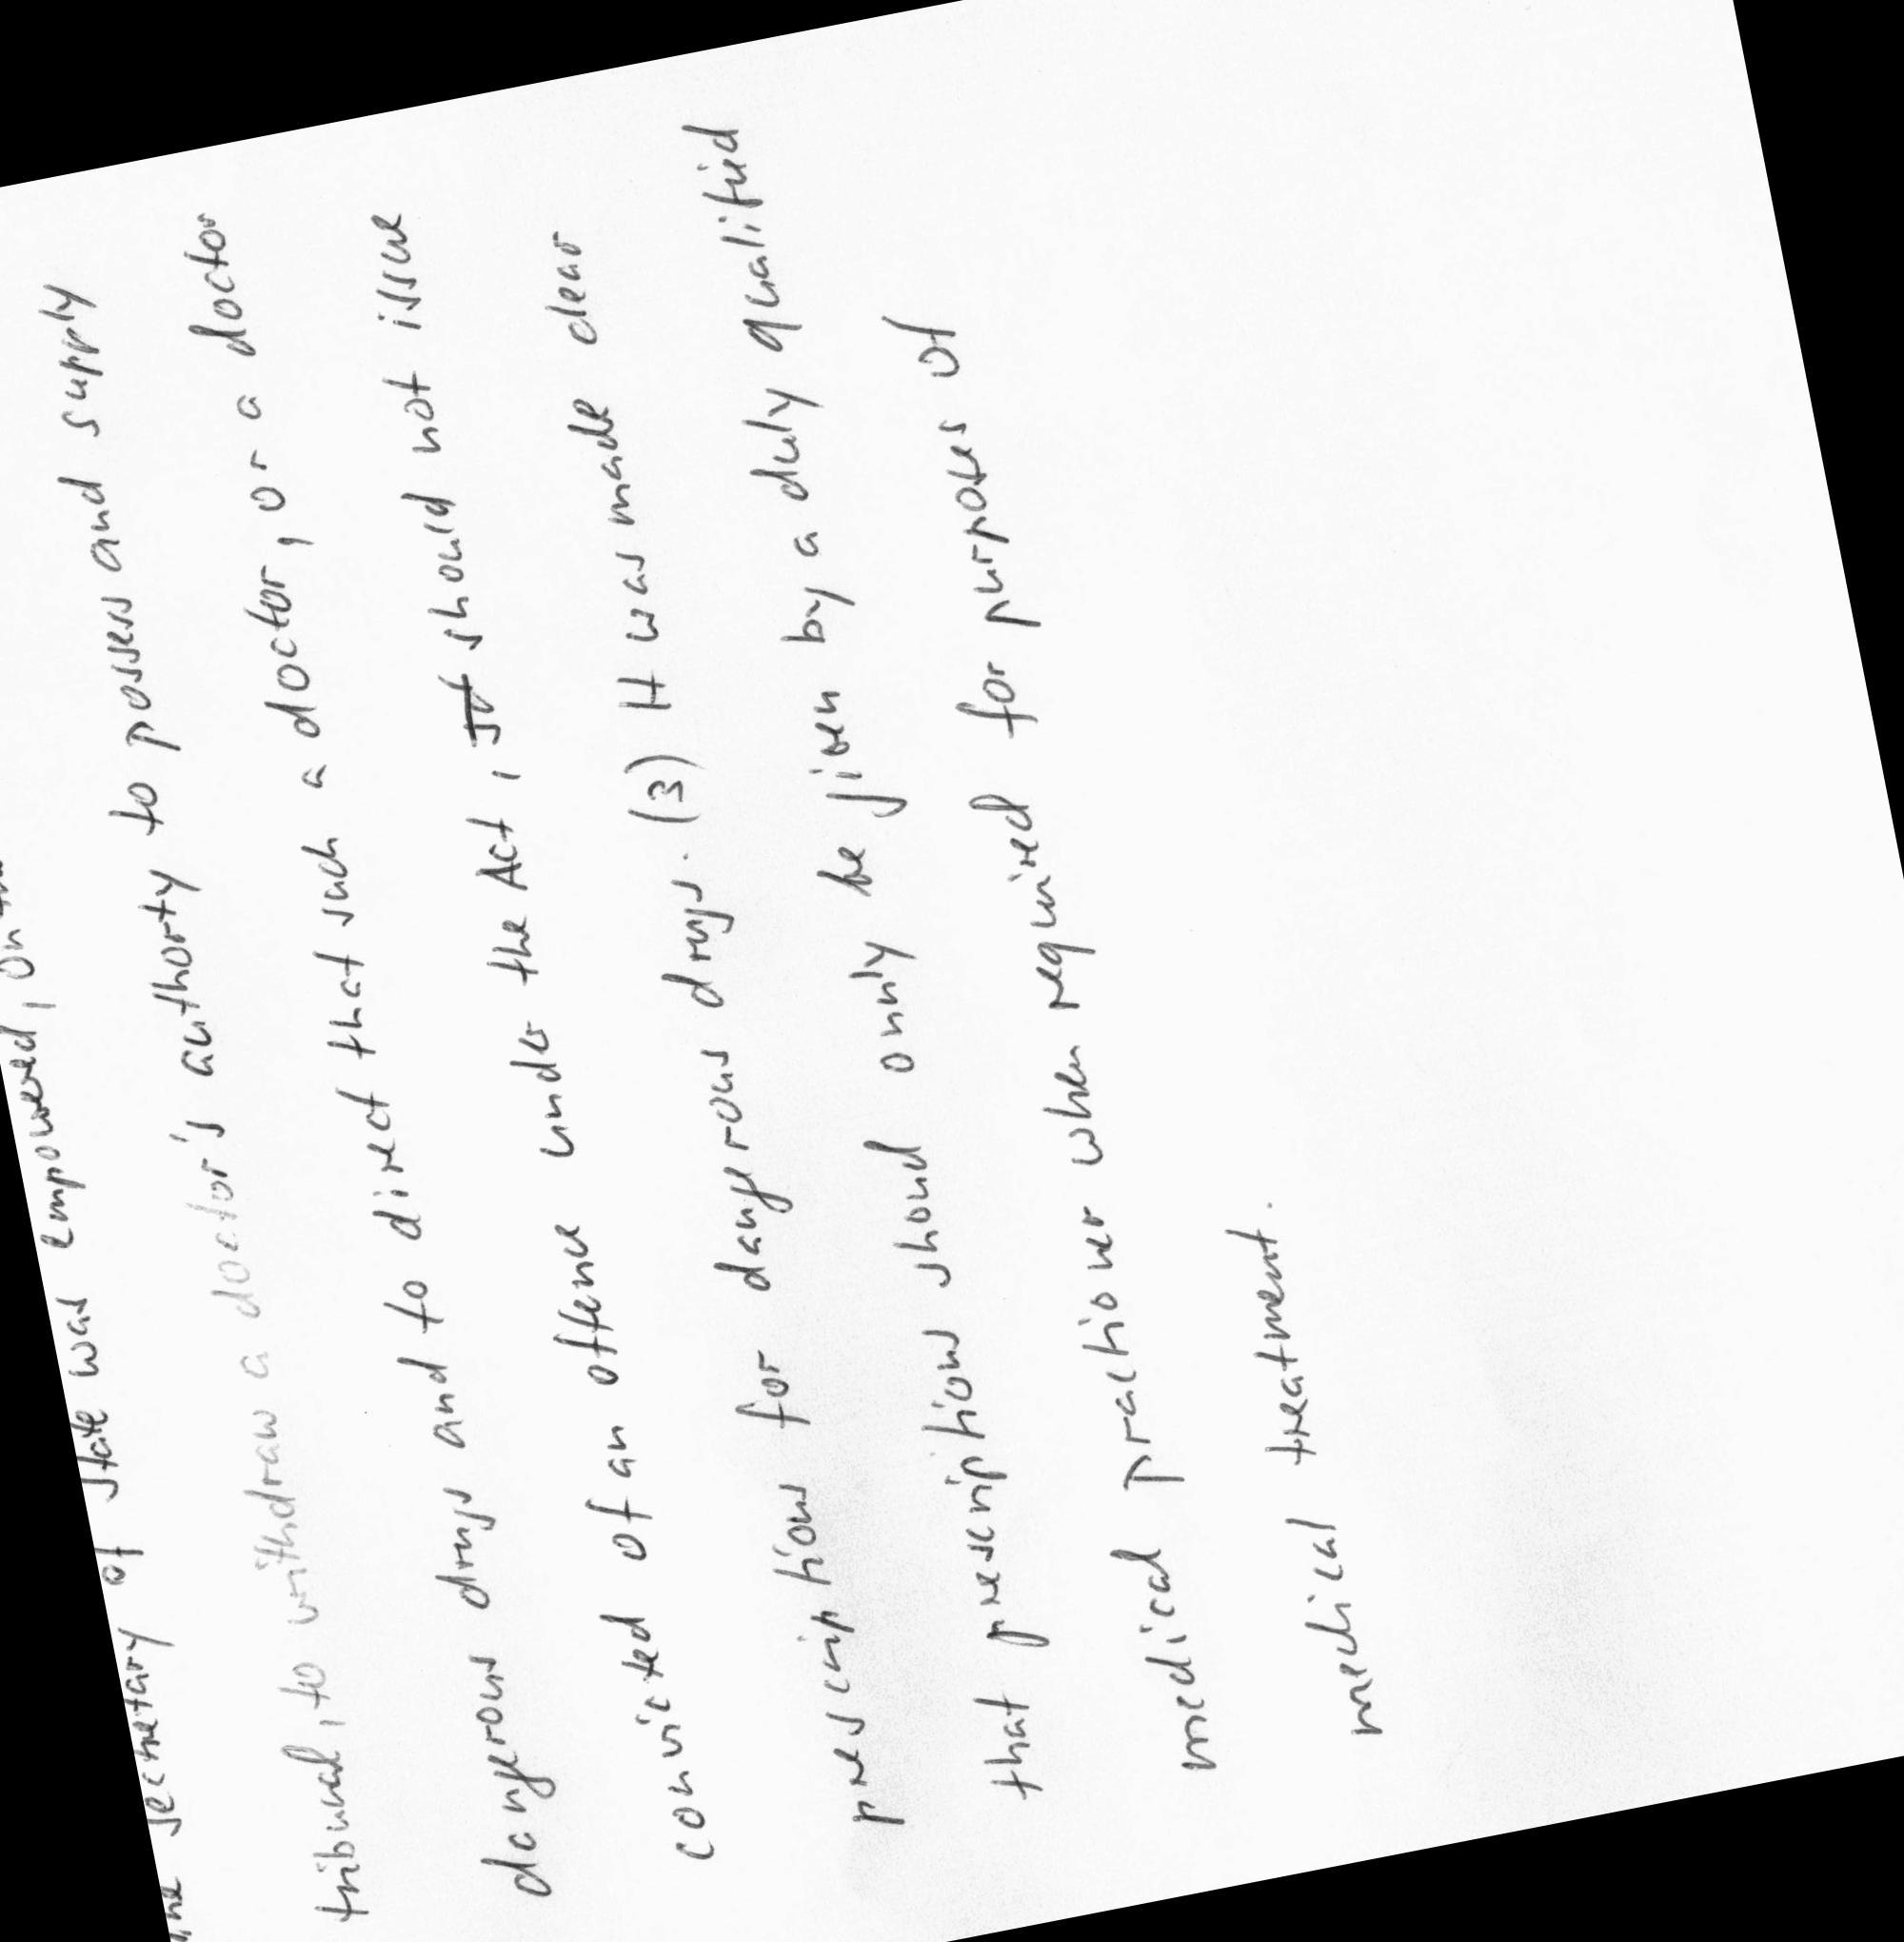 the Secretary of State was empowered, on
tribunal, to withdraw a doctor's authorty to possess and supply
dangerous drugs and to direct that such a doctor, or a doctor
convicted of an offence under the Act, should not issue
prescriptions for dangerous drugs. (3) It was made clear
that prescriptions should only be given by a duly qualified
medical practioner when required for purposes of
medical treatment.